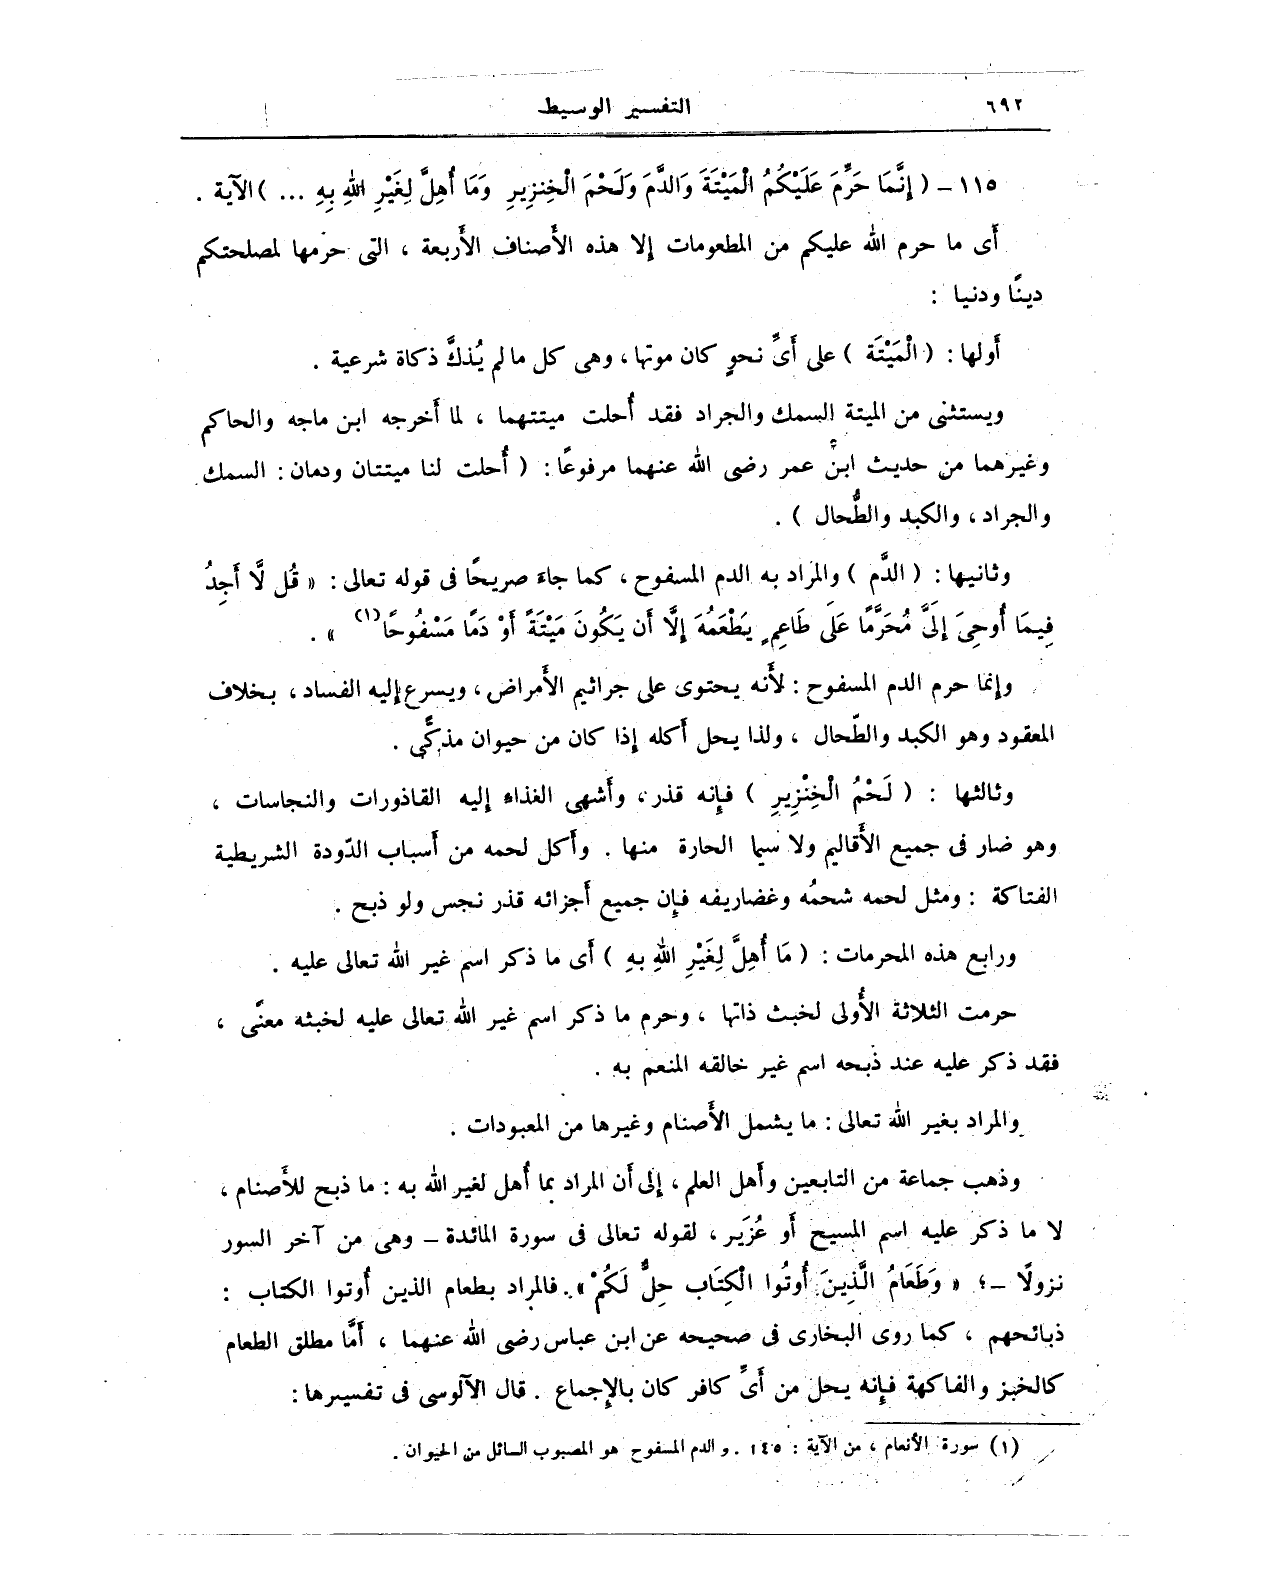 ٦٩٢
التفسير الوسيط
١١٥ - ( إِنَّمَا حَرَّمَ عَلَيْكُمُ الْمَيْتَةَ وَالدَّمَ وَلَحْمَ الْخِنزِيرِ وَمَا أُهِلَّ لِغَيْرِ اللهِ بِهِ ... ) الآية .
أى ما حرم الله عليكم من المطعومات إلا هذه الأصناف الأربعة ، التى حرمها لمصلحتكم
دينًا ودنيا :
أولها : ( الْمَيْتَة ) على أىِّ نحوٍ كان موتها ، وهى كل ما لم يُذكَّ ذكاة شرعية .
ويستثنى من الميتة السمك والجراد فقد أُحلت ميتتهما ، لما أخرجه ابن ماجه والحاكم
وغيرهما من حديث ابن عمر رضى الله عنهما مرفوعًا : ( أُحلت لنا ميتتان ودمان : السمك
والجراد ، والكبد والطُّحال ) .
وثانيها : ( الدَّم ) والمراد به الدم المسفوح ، كما جاءَ صريحًا فى قوله تعالى : « قُل لَّا أَجِدُ
فِيمَا أُوحِىَ إِلَىَّ مُحَرَّمًا عَلَى طَاعِمٍ يَطْعَمُهُ إِلَّا أَن يَكُونَ مَيْتَةً أَوْ دَمًا مَسْفُوحًا (١) » .
وإنما حرم الدم المسفوح : لأَنه يحتوى على جراثيم الأَمراض ، ويسرع إليه الفساد ، بخلاف
المعقود وهو الكبد والطّحال ، ولذا يحل أكله إذا كان من حيوان مذكًّى .
وثالثها : ( لَحْمُ الْخِنْزِيرِ ) فإنه قذر ، وأشهى الغذاء إليه القاذورات والنجاسات ،
وهو ضار فى جميع الأَقاليم ولا سيما الحارة منها . وأكل لحمه من أسباب الدّودة الشريطية
الفتاكة : ومثل لحمه شحمُه وغضاريفه فإن جميع أجزائه قذر نجس ولو ذبح .
ورابع هذه المحرمات : ( مَا أُهِلَّ لِغَيْرِ اللهِ بِهِ ) أى ما ذكر اسم غير الله تعالى عليه .
حرمت الثلاثة الأُولى لخبث ذاتها ، وحرم ما ذكر اسم غير الله تعالى عليه لخبثه معنًى ،
فقد ذكر عليه عند ذبحه اسم غير خالقه المنعم به .
والمراد بغير الله تعالى : ما يشمل الأَصنام وغيرها من المعبودات .
وذهب جماعة من التابعين وأَهل العلم ، إلى أن المراد بما أُهل لغير الله به : ما ذبح للأَصنام ،
لا ما ذكر عليه اسم المسيح أو عُزَير ، لقوله تعالى فى سورة المائدة - وهى من آخر السور
نزولًا - ؛ « وَطَعَامُ الَّذِينَ أُوتُوا الْكِتَاب حِلٌّ لَكُمْ » . فالمراد بطعام الذين أُوتوا الكتاب :
ذبائحهم ، كما روى البخارى فى صحيحه عن ابن عباس رضى الله عنهما ، أمَّا مطلق الطعام
كالخبز والفاكهة فإنه يحل من أىِّ كافر كان بالإجماع . قال الآلوسى فى تفسيرها :
(١) سورة الأنعام ، من الآية : ١٤٥ . والدم المسفوح هو المصبوب السائل من الحيوان .